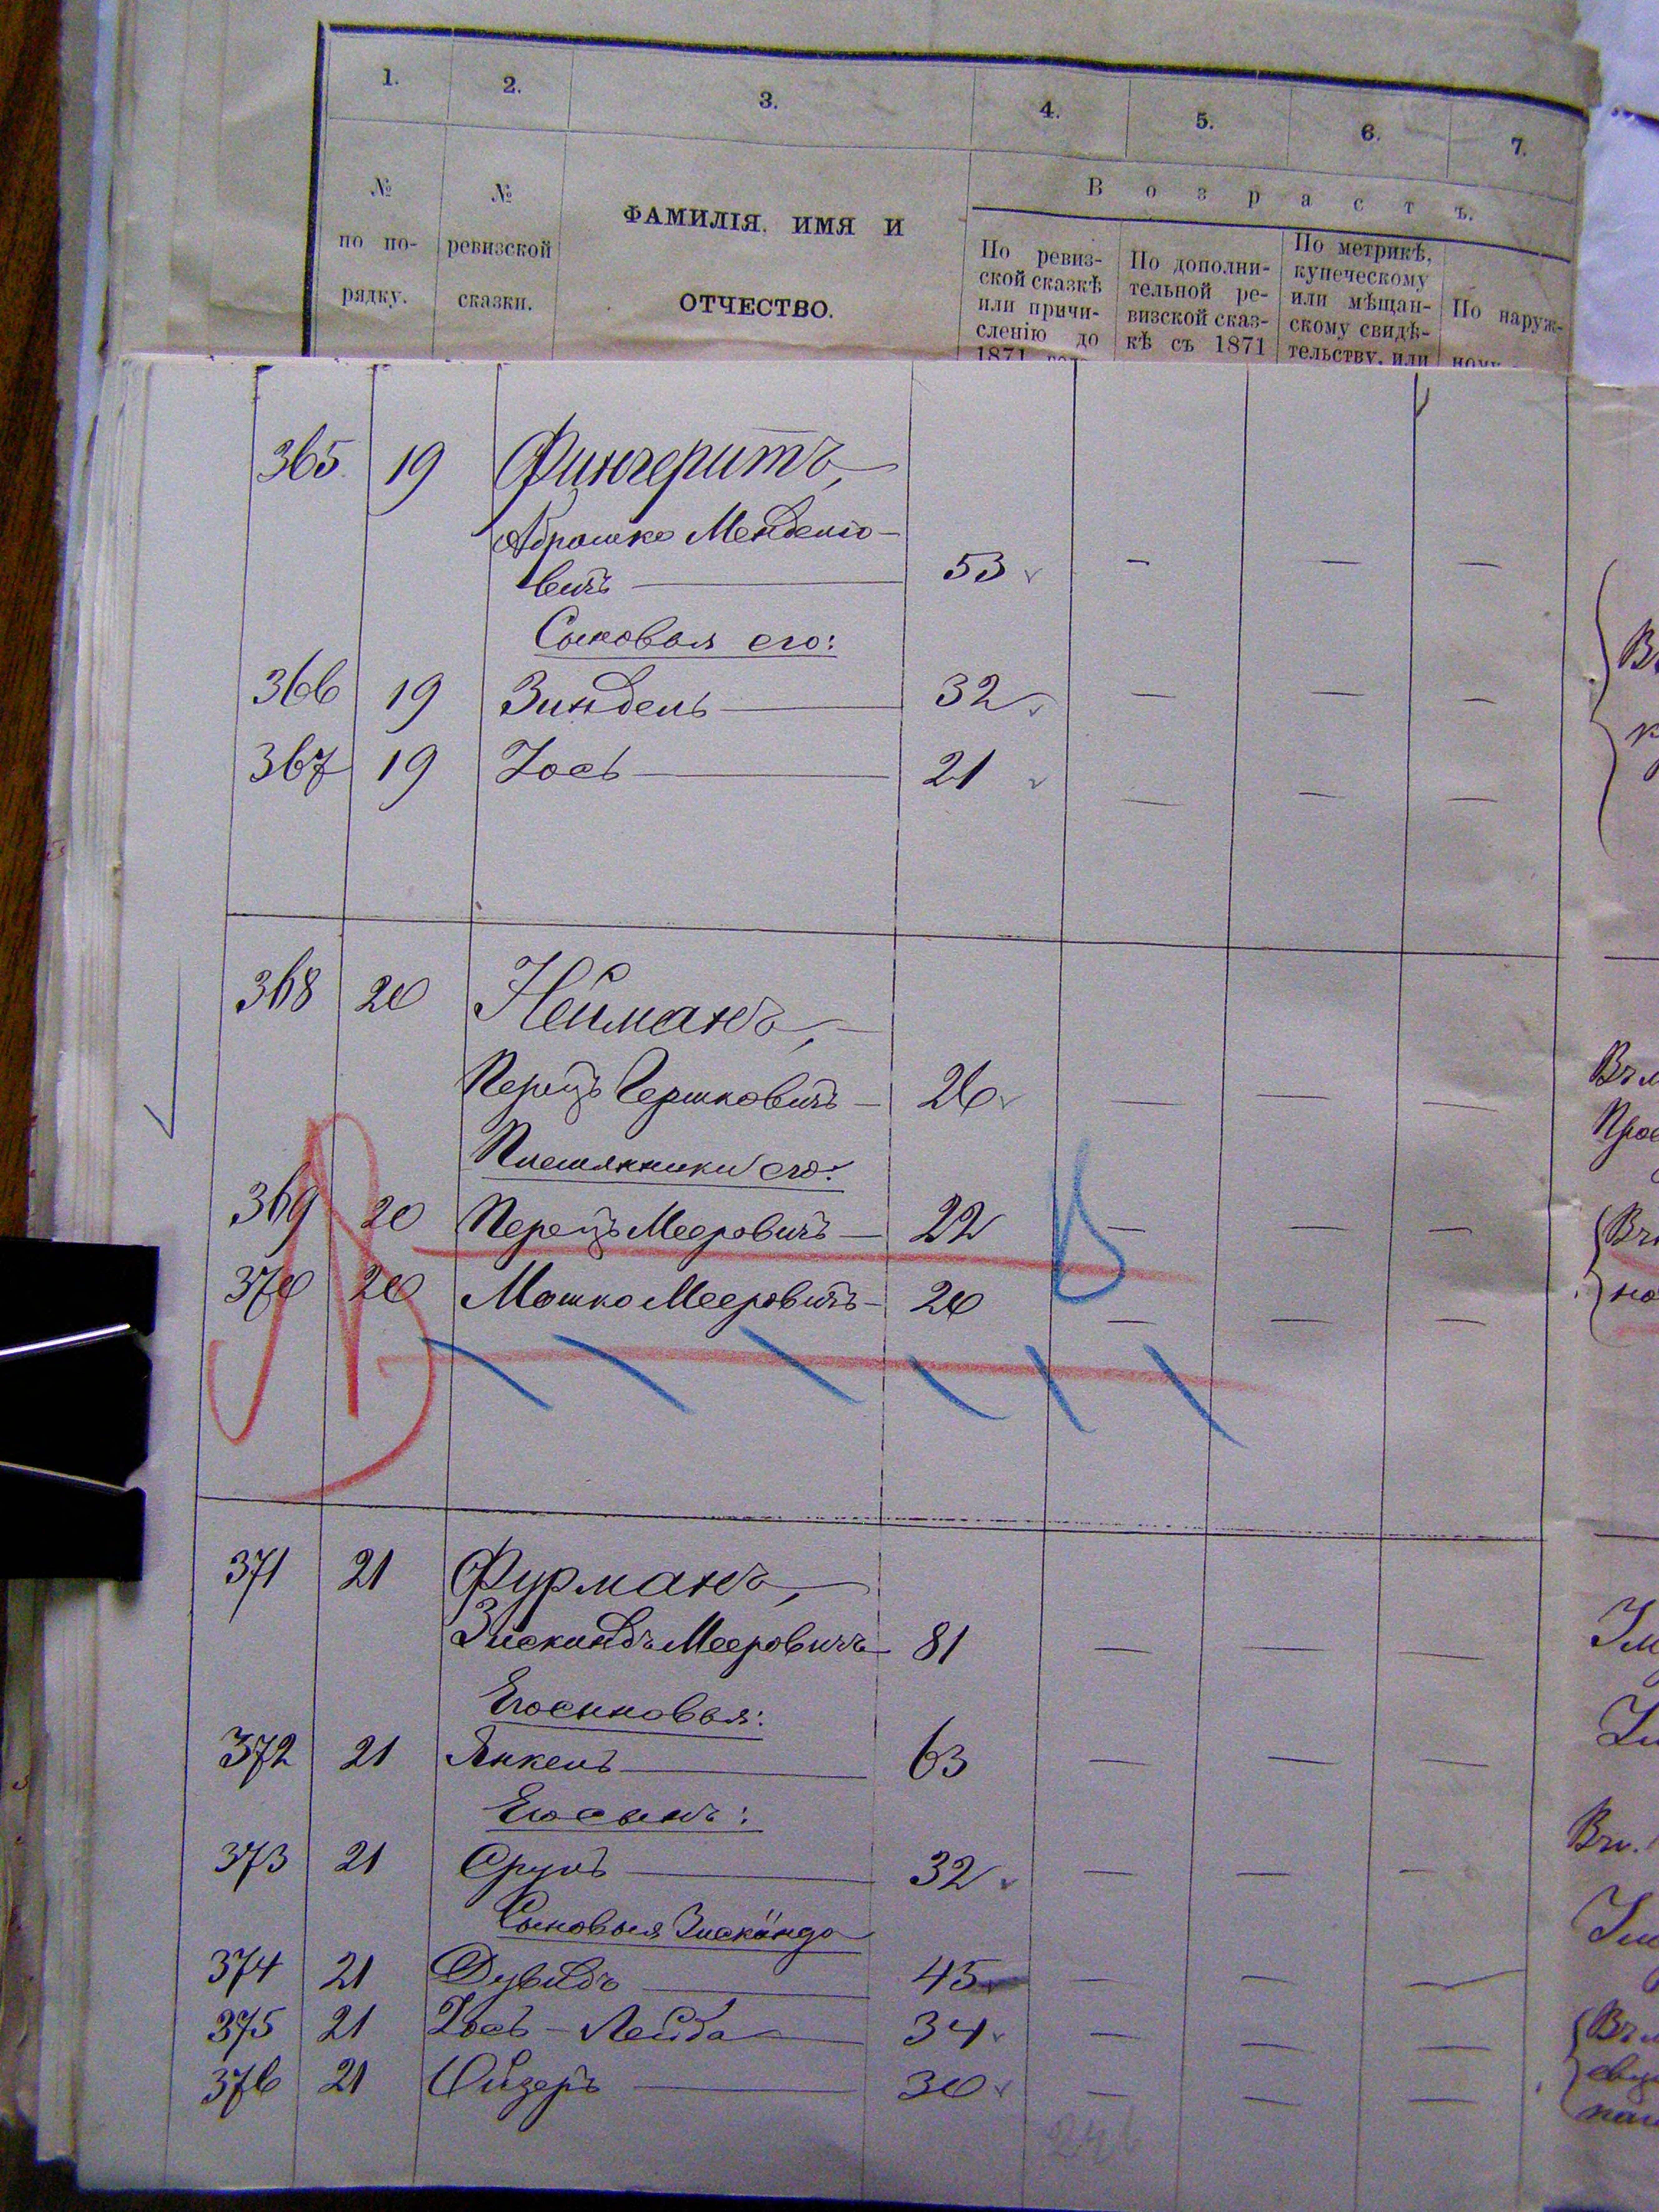 1. 2. 3. 4. 5. 6. 7.
№ по порядку.
№ ревизской сказки.
ФАМИЛІЯ, ИМЯ И
ОТЧЕСТВО.
Возрастъ.
По ревиз-
ской сказкѣ
или причи-
сленію до
1871
По дополни-
тельной ре-
визской сказ-
кѣ съ 1871
По метрикѣ,
купеческому
или мѣщан-
скому свидѣ-
тельству, или
По наруж-
ному
365 19 Фингеритъ,
Абрашко Менделіо-
вичъ 53
Сыновья его:
366 19 Зиндель 32
367 19 Іось 21
368 20 Нейманъ,
Перецъ Гершковичъ 26
Племянники его:
369 20 Перецъ Мееровичъ 22
370 20 Мошко Мееровичъ 20
371 21 Фурманъ,
Зискиндъ Мееровичъ 81
Его сыновья:
372 21 Янкель 63
Его сынъ:
373 21 Сруль 32
Сыновья Зискинда
374 21 Дувидъ 45
375 21 Іось-Лейба 34
376 21 Ойзеръ 30